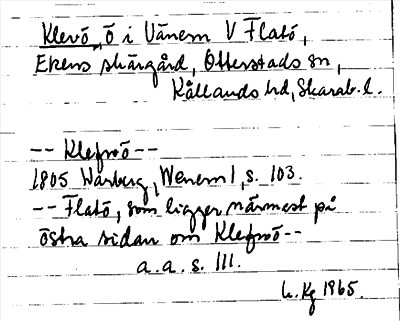 Klevö, Ö i Vänern V Flatö,
Ekens skärgård, Otterstads sn,
Kållands hd, Skarab. l.
-- Klefwö --
1805 Warberg, Wenern 1, s. 103.
-- Flatö, som ligger närmast på
östra sidan om Klefwö --
a. a. s. 111.
1965.